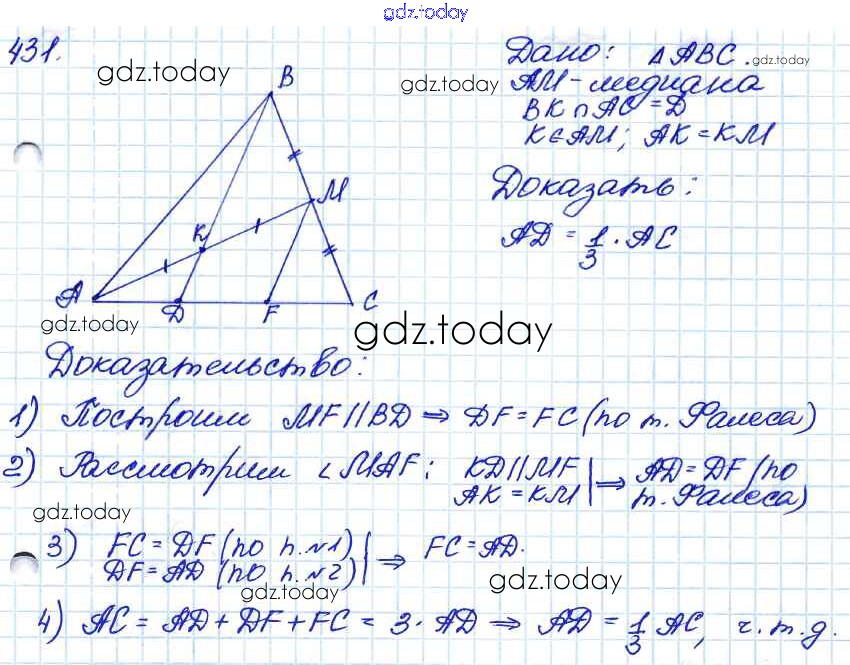 gdz.today
431.
gdz.today
B
M
K
A
D
F
C
gdz.today
Дано: ΔABC.
gdz.today
gdz.today
AM - медиана
BK ∩ AC = D
K ∈ AM; AK = KM
Доказать:
AD = 1/3 · AC
gdz.today
Доказательство:
1) Построим MF || BD ⇒ DF = FC (по т. Фалеса)
2) Рассмотрим ∠MAF: KD || MF | ⇒ AD = DF (по
AK = KM | т. Фалеса)
gdz.today
3) FC = DF (по п.№1) | ⇒ FC = AD.
DF = AD (по п.№2) |
gdz.today
gdz.today
4) AC = AD + DF + FC = 3 · AD ⇒ AD = 1/3 AC, ч.т.д.